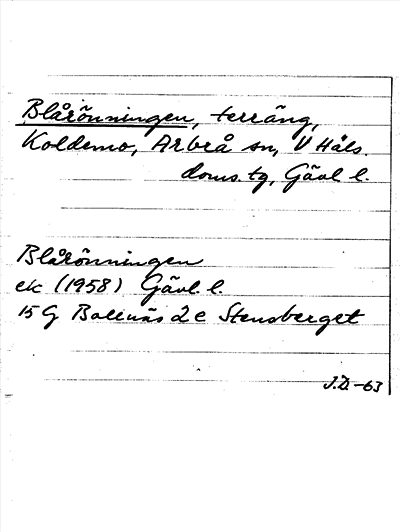 Blårönningen, terräng,
Koldemo, Arbrå sn, V Häls.
doms. tg, Gävl. l.
Blårönningen
ek (1958) Gävl. l.
15 G Bollnäs 2 e Stensberget
J.D.-63